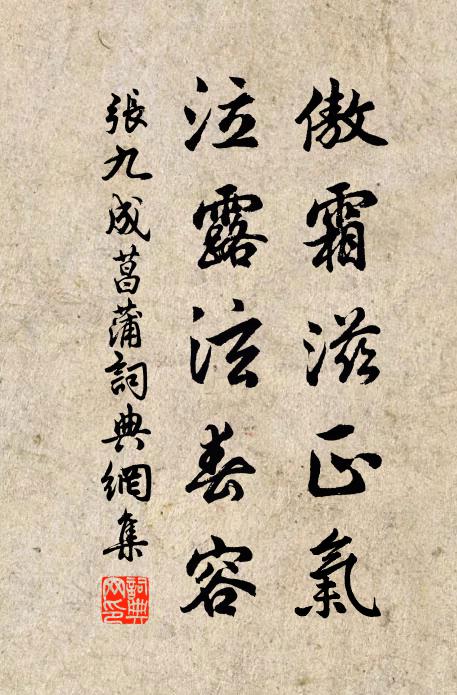 傲霜滋正氣
泣露泫春容
張九成菖蒲詞典網集
詞典网印